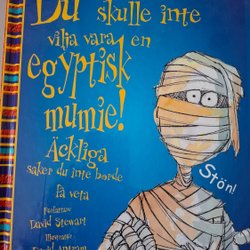 Du skulle inte
vilja vara en
egyptisk
mumie!
Äckliga
saker du inte borde
få veta
Författare
David Stewart
Illustratör
David Antram
Stön!